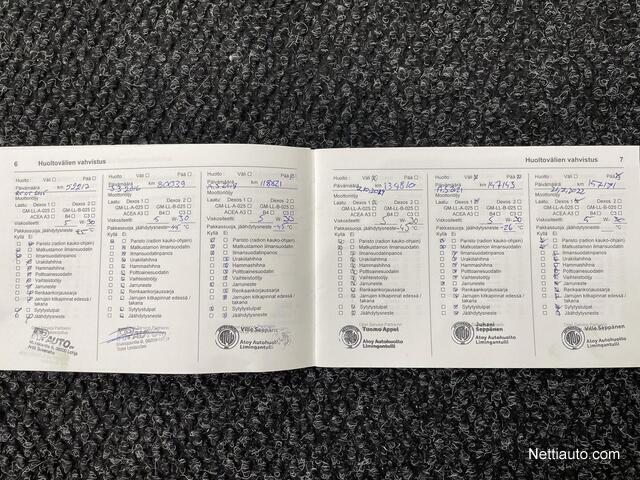 6 Huoltovälien vahvistus
Huolto: Väli Pää
Päivämäärä km
Moottoriöljy
Laatu: Dexos 1 Dexos 2
GM-LL-A-025 GM-LL-B-025
ACEA A3 B4 C3
Viskositeetti 5 W 30
Pakkassuoja, jäähdytysneste °C
Kyllä Ei
Paristo (radion kauko-ohjain)
Matkustamon ilmansuodatin
Ilmansuodatinpanos
Urakilahihna
Hammashihna
Polttoainesuodatin
Vaihteistoöljy
Jarruneste
Renkaankorjaussarja
Jarrujen kitkapinnat edessä /
takana
Sytytystulpat
Jäähdytysneste
Huolto: Väli Pää
Päivämäärä km 80039
Moottoriöljy
Laatu: Dexos 1 Dexos 2
GM-LL-A-025 GM-LL-B-025
ACEA A3 B4 C3
Viskositeetti 5 W 30
Pakkassuoja, jäähdytysneste -45 °C
Kyllä Ei
Paristo (radion kauko-ohjain)
Matkustamon ilmansuodatin
Ilmansuodatinpanos
Urakilahihna
Hammashihna
Polttoainesuodatin
Vaihteistoöljy
Jarruneste
Renkaankorjaussarja
Jarrujen kitkapinnat edessä /
takana
Sytytystulpat
Jäähdytysneste
Huolto: Väli Pää
Päivämäärä km
Moottoriöljy
Laatu: Dexos 1 Dexos 2
GM-LL-A-025 GM-LL-B-025
ACEA A3 B4 C3
Viskositeetti 5 W 30
Pakkassuoja, jäähdytysneste -45 °C
Kyllä Ei
Paristo (radion kauko-ohjain)
Matkustamon ilmansuodatin
Ilmansuodatinpanos
Urakilahihna
Hammashihna
Polttoainesuodatin
Vaihteistoöljy
Jarruneste
Renkaankorjaussarja
Jarrujen kitkapinnat edessä /
takana
Sytytystulpat
Jäähdytysneste
Ville Seppänen
Atoy Autohuolto
Limingantulli
Huoltovälien vahvistus 7
Huolto: Väli Pää
Päivämäärä km
Moottoriöljy
Laatu: Dexos 1 Dexos 2
GM-LL-A-025 GM-LL-B-025
ACEA A3 B4 C3
Viskositeetti 5 W 30
Pakkassuoja, jäähdytysneste -45 °C
Kyllä Ei
Paristo (radion kauko-ohjain)
Matkustamon ilmansuodatin
Ilmansuodatinpanos
Urakilahihna
Hammashihna
Polttoainesuodatin
Vaihteistoöljy
Jarruneste
Renkaankorjaussarja
Jarrujen kitkapinnat edessä /
takana
Sytytystulpat
Jäähdytysneste
Tuomo Appel
Atoy Autohuolto
Limingantulli
Huolto: Väli Pää
Päivämäärä km 147143
Moottoriöljy
Laatu: Dexos 1 Dexos 2
GM-LL-A-025 GM-LL-B-025
ACEA A3 B4 C3
Viskositeetti 5 W 30
Pakkassuoja, jäähdytysneste -26 °C
Kyllä Ei
Paristo (radion kauko-ohjain)
Matkustamon ilmansuodatin
Ilmansuodatinpanos
Urakilahihna
Hammashihna
Polttoainesuodatin
Vaihteistoöljy
Jarruneste
Renkaankorjaussarja
Jarrujen kitkapinnat edessä /
takana
Sytytystulpat
Jäähdytysneste
Juhani
Seppänen
Atoy Autohuolto
Limingantulli
Huolto: Väli Pää
Päivämäärä km
Moottoriöljy
Laatu: Dexos 1 Dexos 2
GM-LL-A-025 GM-LL-B-025
ACEA A3 B4 C3
Viskositeetti 5 W 30
Pakkassuoja, jäähdytysneste °C
Kyllä Ei
Paristo (radion kauko-ohjain)
Matkustamon ilmansuodatin
Ilmansuodatinpanos
Urakilahihna
Hammashihna
Polttoainesuodatin
Vaihteistoöljy
Jarruneste
Renkaankorjaussarja
Jarrujen kitkapinnat edessä /
takana
Sytytystulpat
Jäähdytysneste
Ville Seppänen
Atoy Autohuolto
Limingantulli
Nettiauto.com